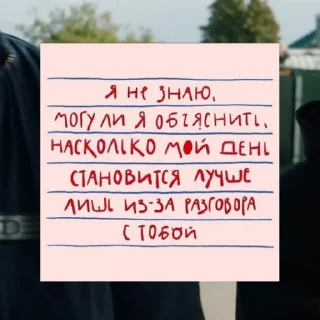 Я НЕ ЗНАЮ,
МОГУ ЛИ Я ОБЪЯСНИТЬ,
НАСКОЛЬКО МОЙ ДЕНЬ
СТАНОВИТСЯ ЛУЧШЕ
ЛИШЬ ИЗ-ЗА РАЗГОВОРА
С ТОБОЙ